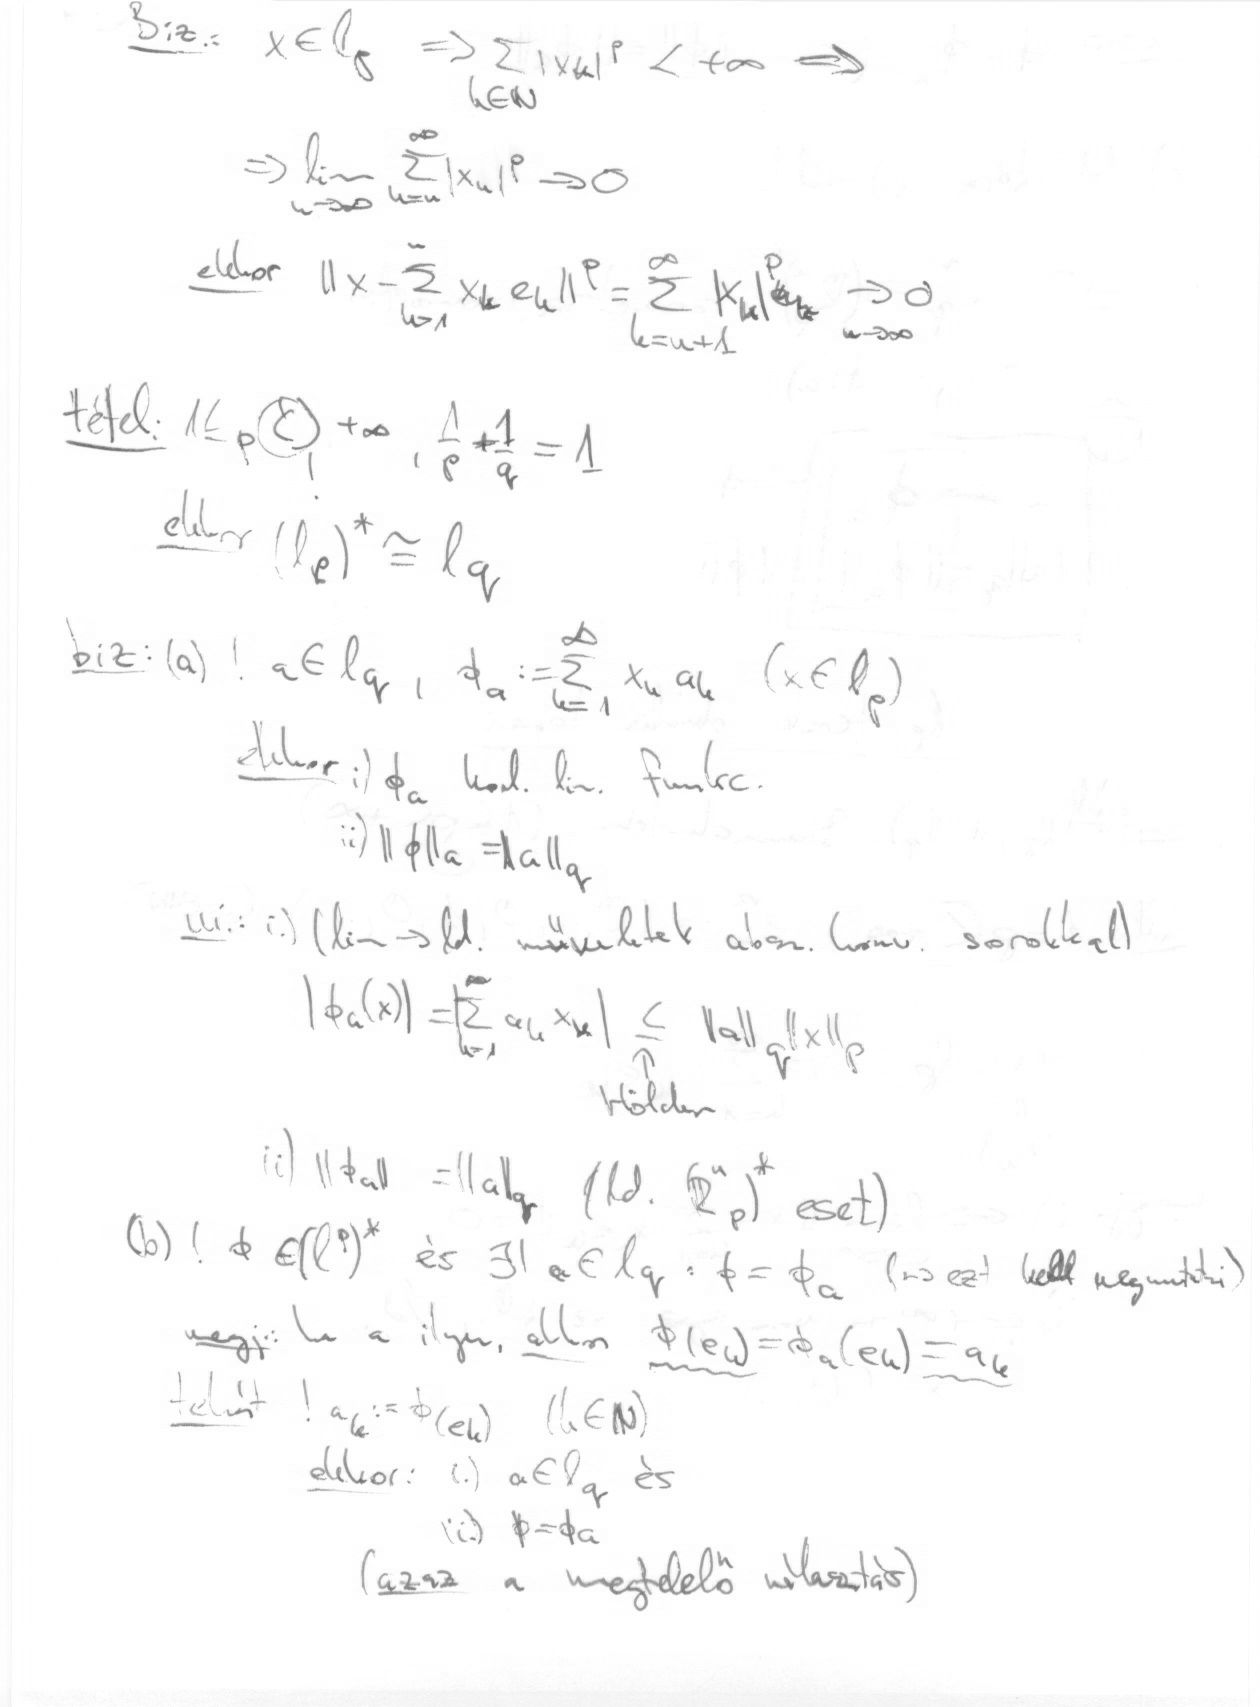 Biz.: x ∈ l_p ⟹ Σ_{k∈ℕ} |x_k|^p < +∞ ⟹
⟹ lim_{n→∞} Σ_{k=n}^∞ |x_k|^p → 0
ekkor ‖x − Σ_{k=1}^n x_k e_k‖^p = Σ_{k=n+1}^∞ |x_k|^p →_{n→∞} 0
tétel: 1 ≤ p < +∞, 1/p + 1/q = 1
!
ekkor (l_p)* ≅ l_q
biz: (a) ! a ∈ l_q, ϕ_a := Σ_{k=1}^∞ x_k a_k (x ∈ l_p)
ekkor i) ϕ_a korl. lin. funkc.
ii) ‖ϕ‖_a = ‖a‖_q
ui.: i.) (lin → ld. műveletek absz. konv. sorokkal)
|ϕ_a(x)| = |Σ_{k=1}^∞ a_k x_k| ≤ ‖a‖_q ‖x‖_p
↑
Hölder
ii) ‖ϕ_a‖ = ‖a‖_q (ld. (ℝ^n_p)* eset)
(b) ! ϕ ∈ (l^p)* és ∃! a ∈ l_q : ϕ = ϕ_a (→ ezt kell megmutatni)
megj: ha a ilyen, akkor ϕ(e_k) = ϕ_a(e_k) = a_k
tehát ! a_k := ϕ(e_k) (k ∈ ℕ)
ekkor: i.) a ∈ l_q és
ii.) ϕ = ϕ_a
(azaz a megfelelő választás)